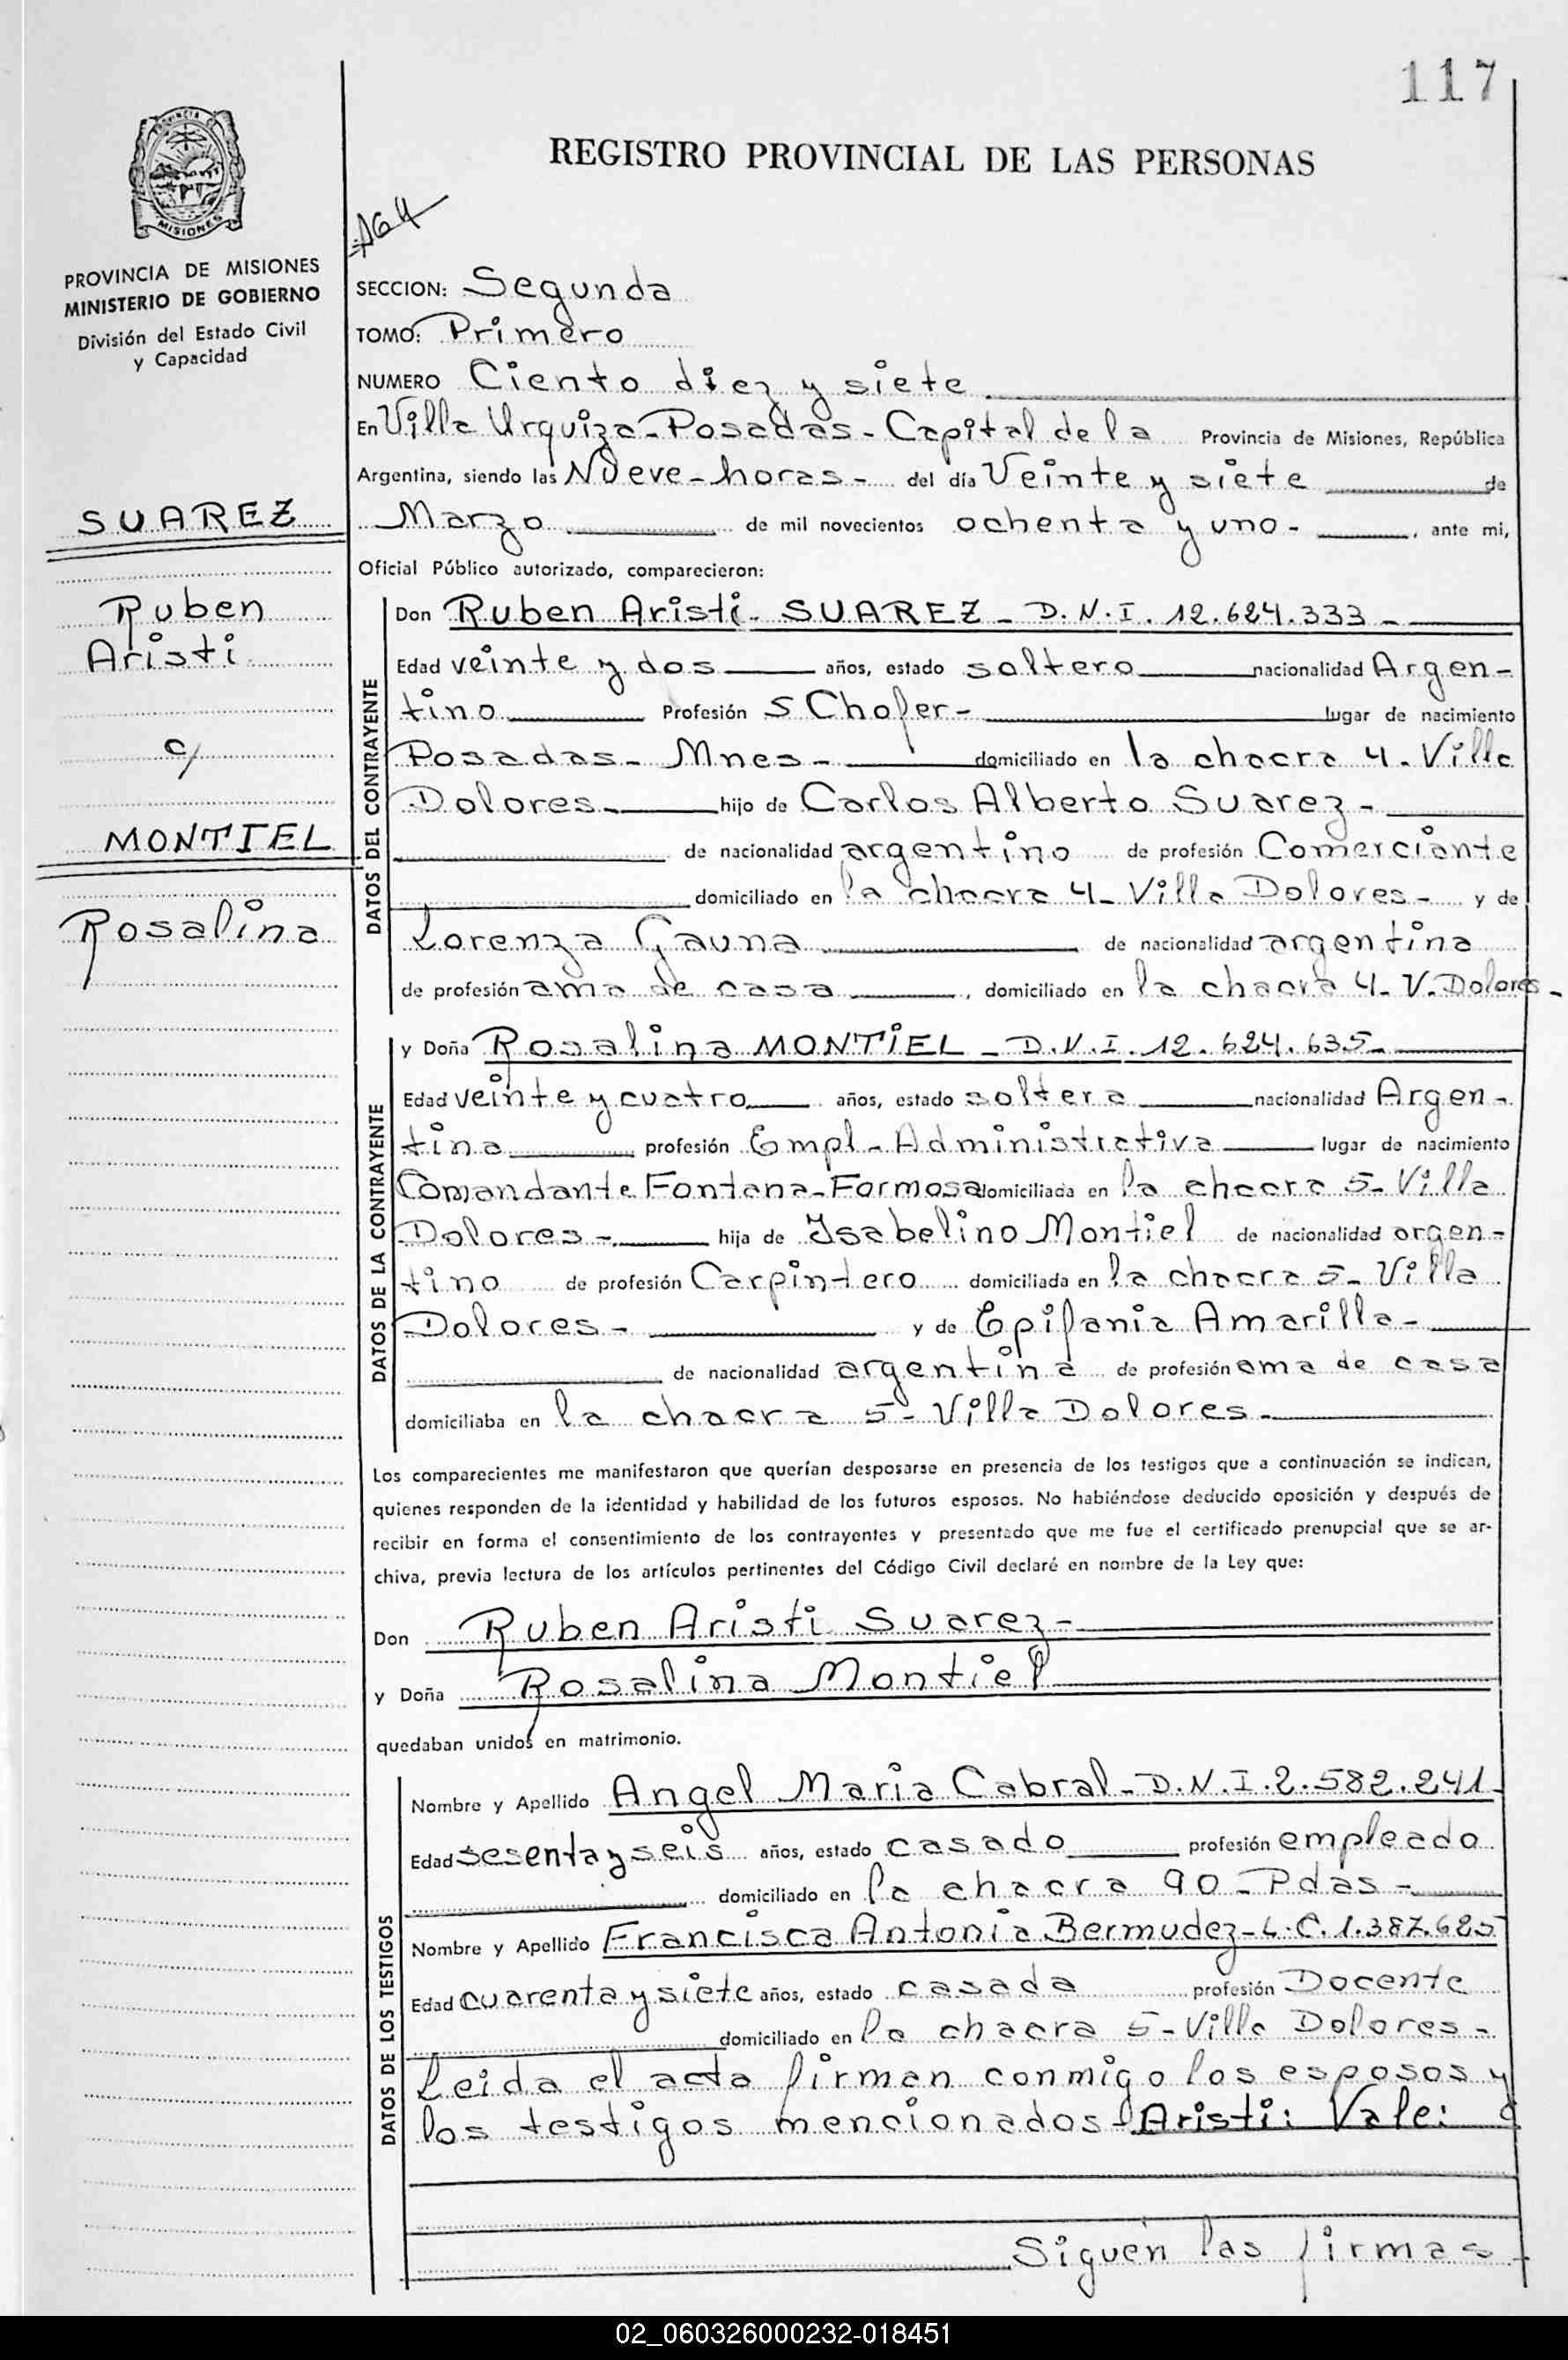 117
REGISTRO PROVINCIAL DE LAS PERSONAS
PROVINCIA DE
MISIONES
PROVINCIA DE MISIONES
MINISTERIO DE GOBIERNO
División del Estado Civil
y Capacidad
SUAREZ
Ruben
Aristi
c/
MONTIEL
Rosalina
SECCION: Segunda
TOMO: Primero
NUMERO Ciento diez y siete
En Villa Urquiza - Posadas - Capital de la Provincia de Misiones, República
Argentina, siendo las Nueve - horas - del día Veinte y siete de
Marzo de mil novecientos ochenta y uno - , ante mi,
Oficial Público autorizado, comparecieron:
DATOS DEL CONTRAYENTE
Don Ruben Aristi - SUAREZ - D.N.I. 12.624.333 -
Edad veinte y dos años, estado soltero nacionalidad Argen-
tino Profesión S Chofer - lugar de nacimiento
Posadas - Mnes - domiciliado en la chacra 4 - Villa
Dolores - hijo de Carlos Alberto Suarez -
de nacionalidad argentino de profesión Comerciante
domiciliado en la chacra 4 - Villa Dolores - y de
Lorenza Gauna de nacionalidad argentina
de profesión ama de casa , domiciliado en la chacra 4 - V. Dolores -
DATOS DE LA CONTRAYENTE
y Doña Rosalina MONTIEL - D.N.I. 12.624.635 -
Edad veinte y cuatro años, estado soltera nacionalidad Argen-
tina profesión Empl - Administrativa lugar de nacimiento
Comandante Fontana - Formosa domiciliada en la chacra 5 - Villa
Dolores - hija de Isabelino Montiel de nacionalidad argen-
tino de profesión Carpintero domiciliada en la chacra 5 - Villa
Dolores - y de Epifania Amarilla -
de nacionalidad argentina de profesión ama de casa
domiciliaba en la chacra 5 - Villa Dolores -
Los comparecientes me manifestaron que querían desposarse en presencia de los testigos que a continuación se indican,
quienes responden de la identidad y habilidad de los futuros esposos. No habiéndose deducido oposición y después de
recibir en forma el consentimiento de los contrayentes y presentado que me fue el certificado prenupcial que se ar-
chiva, previa lectura de los artículos pertinentes del Código Civil declaré en nombre de la Ley que:
Don Ruben Aristi Suarez -
y Doña Rosalina Montiel
quedaban unidos en matrimonio.
DATOS DE LOS TESTIGOS
Nombre y Apellido Angel Maria Cabral - D.N.I. 2.582.241 -
Edad sesenta y seis años, estado casado profesión empleado
domiciliado en la chacra 90 - Pdas -
Nombre y Apellido Francisca Antonia Bermudez - L.C. 1.387.625
Edad cuarenta y siete años, estado casada profesión Docente
domiciliado en la chacra 5 - Villa Dolores -
Leida el acta firman conmigo los esposos y
los testigos mencionados - Aristi: Vale:
Siguen las firmas -
02_060326000232-018451